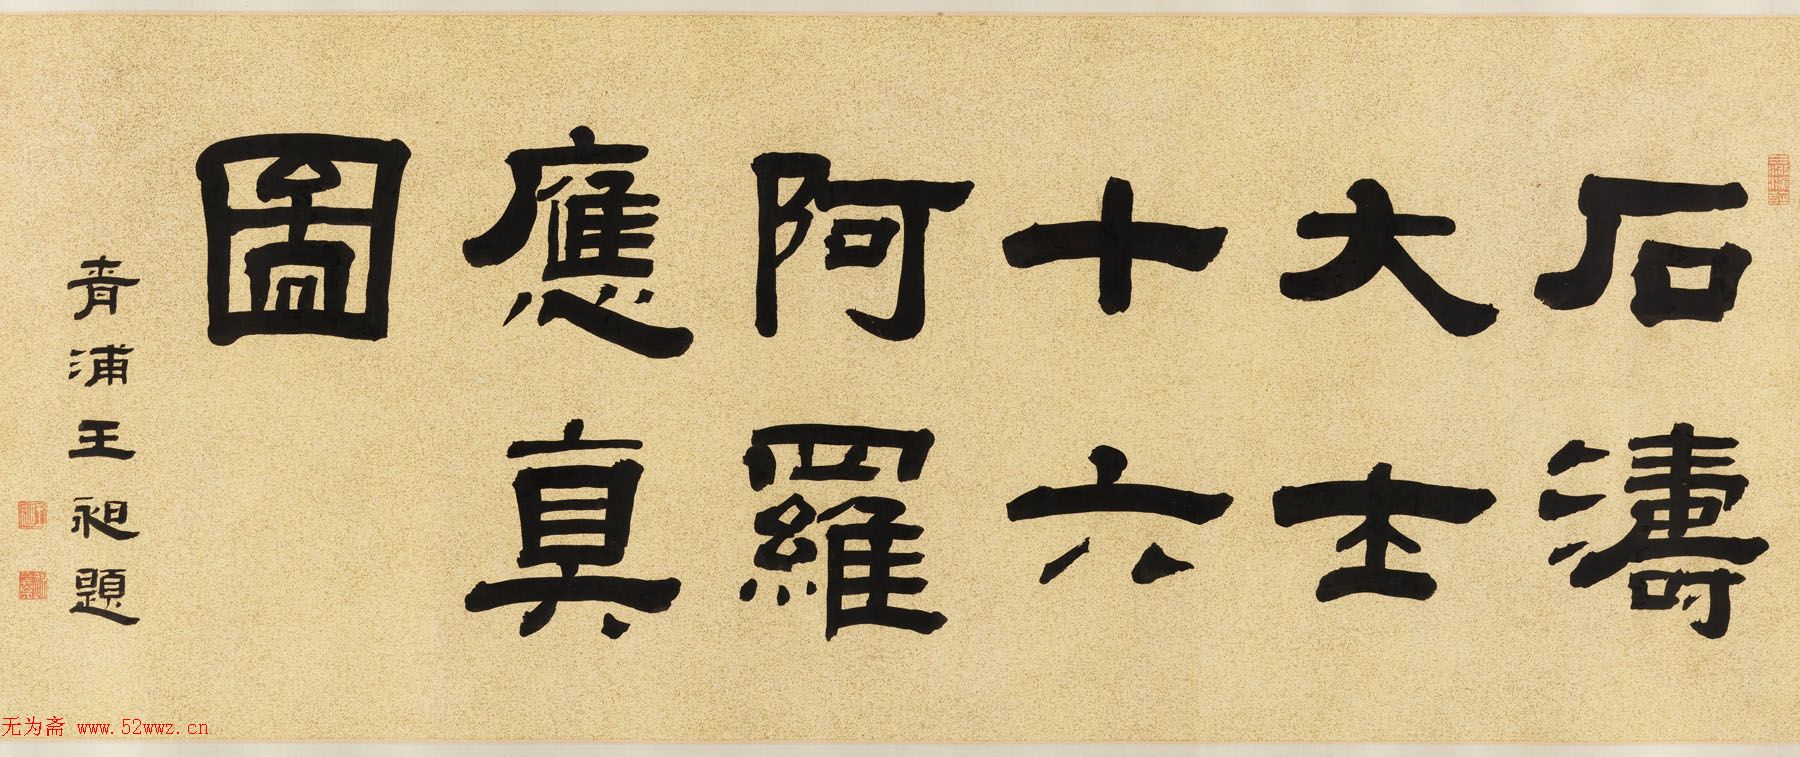 石濤
大士
十六
阿羅
應真
圖
青浦王昶題
无为斋 www.52wwz.cn